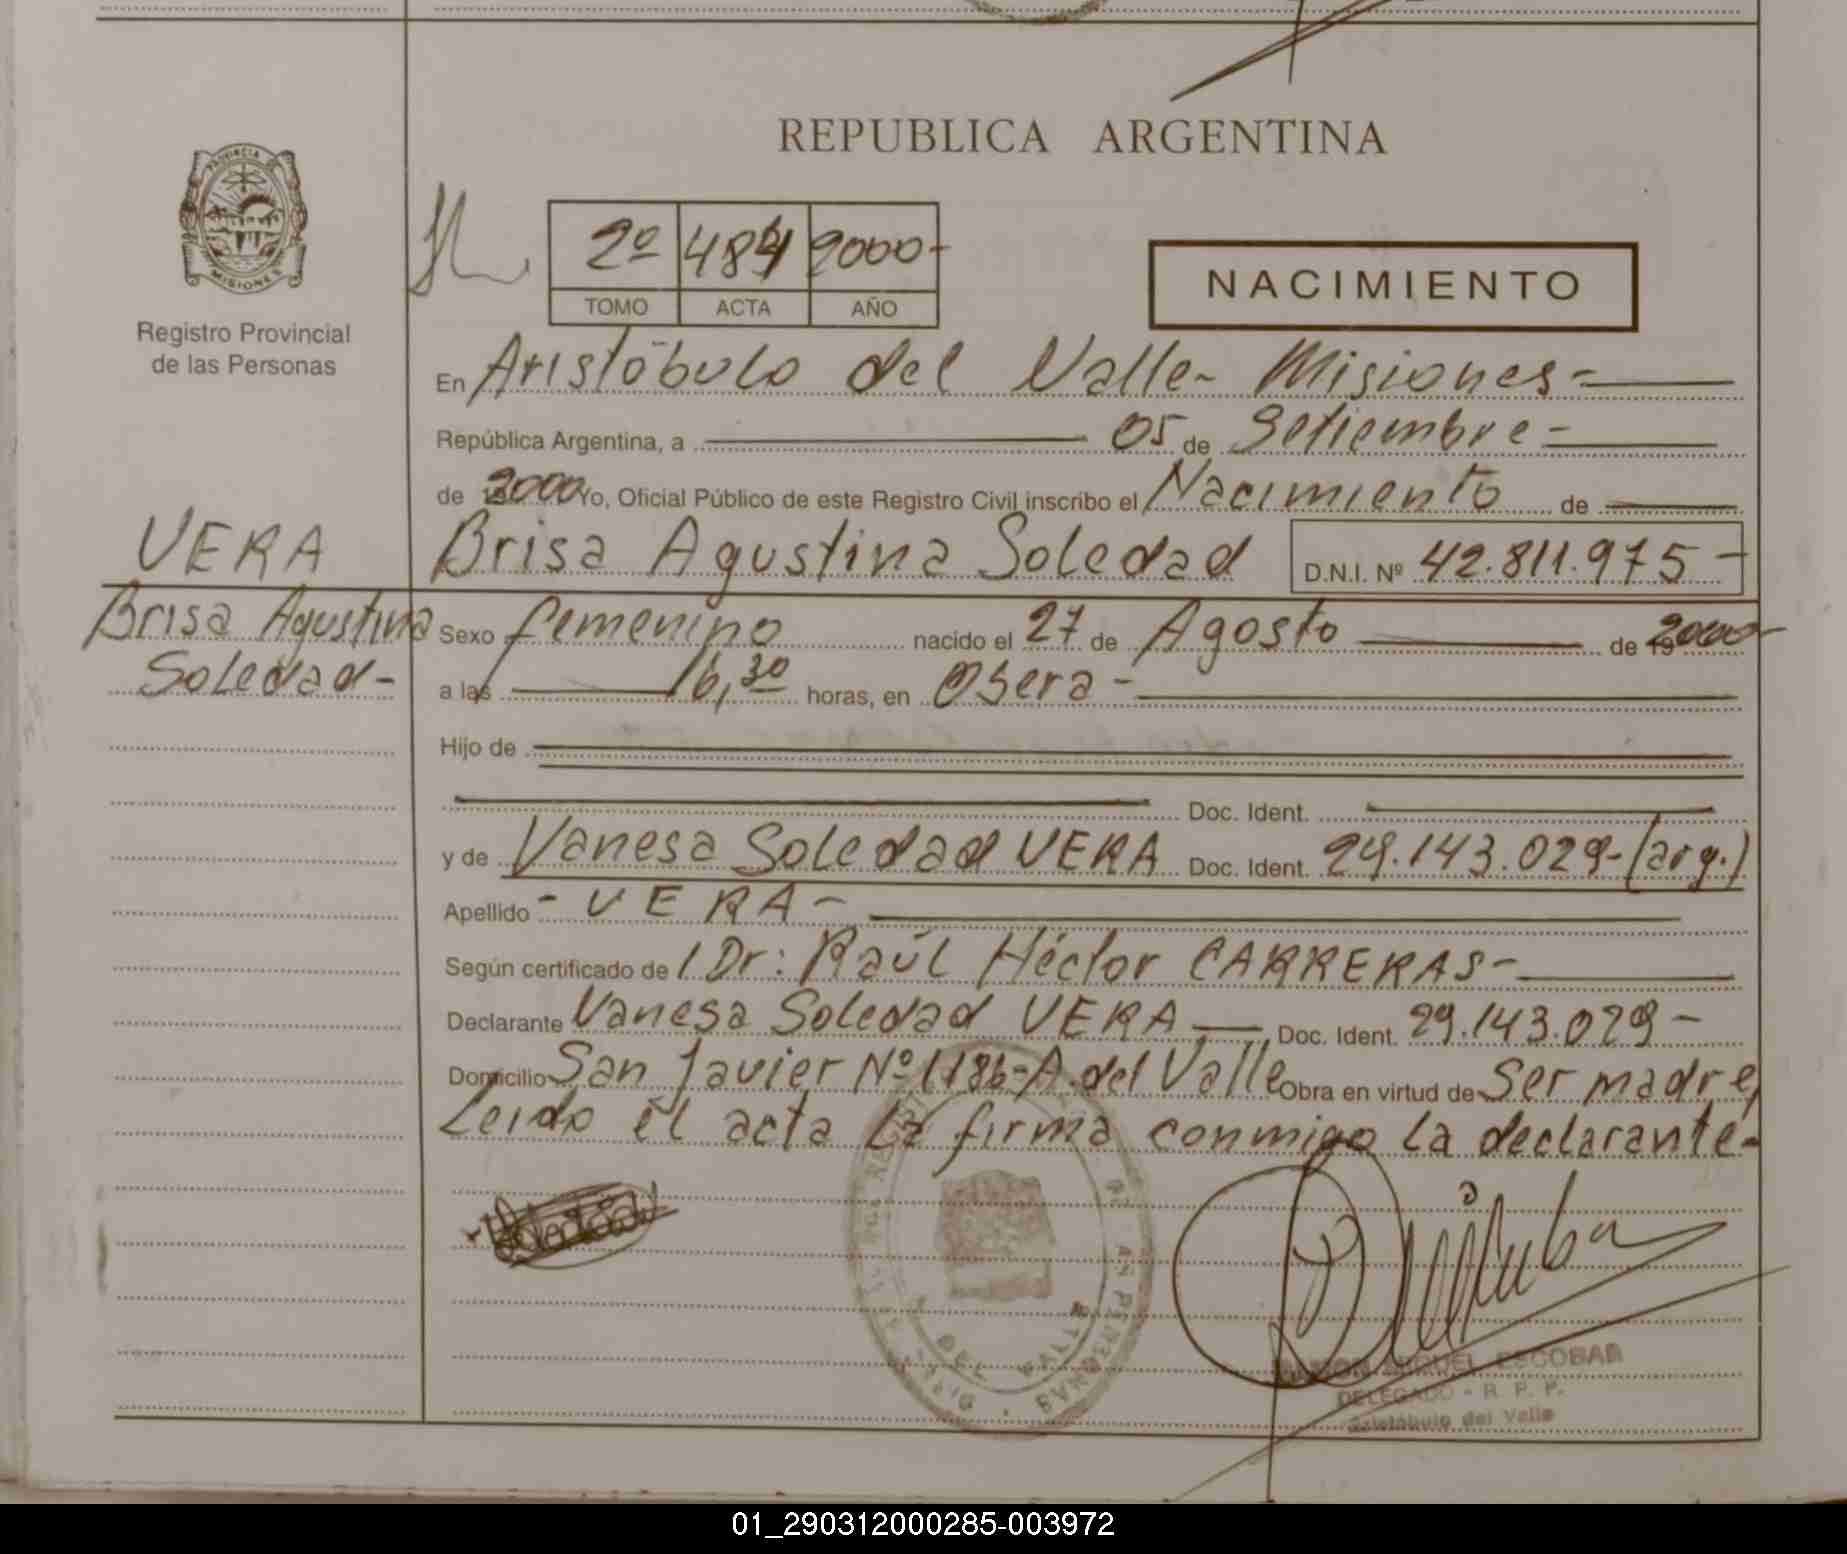 REPUBLICA ARGENTINA
PROVINCIA DE
MISIONES
Registro Provincial
de las Personas
2º 484 2000-
TOMO ACTA AÑO
NACIMIENTO
En Aristóbulo del Valle- Misiones-
República Argentina, a 05 de Setiembre-
de 2000 Yo, Oficial Público de este Registro Civil inscribo el Nacimiento de
VERA
Brisa Agustina Soledad D.N.I. Nº 42.811.975-
Brisa Agustina
Soledad-
Sexo femenino nacido el 27 de Agosto de 2000-
a las 16,30 horas, en Oberá-
Hijo de
Doc. Ident.
y de Vanesa Soledad VERA Doc. Ident. 29.143.029-(arg.)
Apellido -VERA-
Según certificado de / Dr: Raúl Héctor CARRERAS-
Declarante Vanesa Soledad VERA Doc. Ident. 29.143.029-
Domicilio San Javier Nº 1186-A.del Valle Obra en virtud de Ser madre,
Leido el acta la firma conmigo la declarante-
DEL VALLE
RAMON MIGUEL ESCOBAR
DELEGADO - R. P. P.
Aristóbulo del Valle
01_290312000285-003972